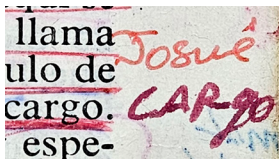 llama Josué
ulo de
cargo. CARgo
espe-